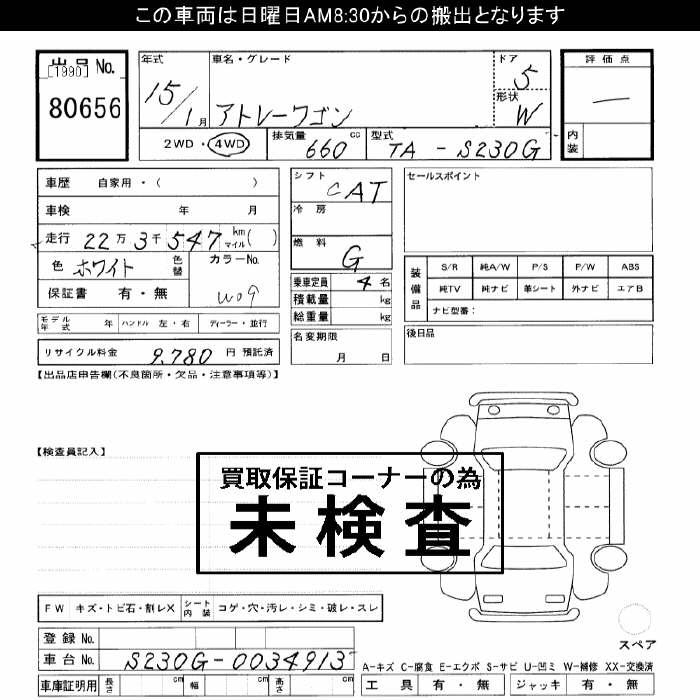 この車両は日曜日AM8:30からの搬出となります
出品No.
[1990]
80656
年式
15/1月
車名・グレード
アトレーワゴン
ドア
5
形状
W
評価点
—
内装
2WD・4WD
排気量 660 cc
型式 TA-S230G
車歴 自家用・( )
車検 年 月
走行 22万3千547 km マイル( )
色 ホワイト 色替
カラーNo. W09
保証書 有・無
シフト CAT
冷房
燃料 G
乗車定員 4名
積載量 kg
総重量 kg
セールスポイント
装備品
S/R 純A/W P/S P/W ABS
純TV 純ナビ 革シート 外ナビ エアB
ナビ型番:
モデル年式 年 ハンドル 左・右 ディーラー・並行
リサイクル料金 9,780 円 預託済
名変期限
月 日
後日品
【出品店申告欄(不良箇所・欠品・注意事項等)】
【検査員記入】
買取保証コーナーの為
未検査
FW キズ・トビ石・割レX シート内装 コゲ・穴・汚レ・シミ・破レ・スレ
登録No.
車台No. S230G-0034913
車庫証明用 長さ cm 幅 cm 高さ cm
スペア
A-キズ C-腐食 E-エクボ S-サビ U-凹ミ W-補修 XX-交換済
工具 有・無 ジャッキ 有・無